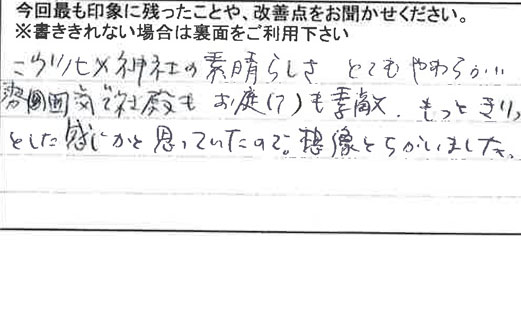 今回最も印象に残ったことや、改善点をお聞かせください。
※書ききれない場合は裏面をご利用下さい
ニウツヒメ神社の素晴らしさ とてもやわらかい
雰囲気で社殿もお庭(?)も素敵.もっときりっ
とした感じかと思っていたので。想像とちがいました。